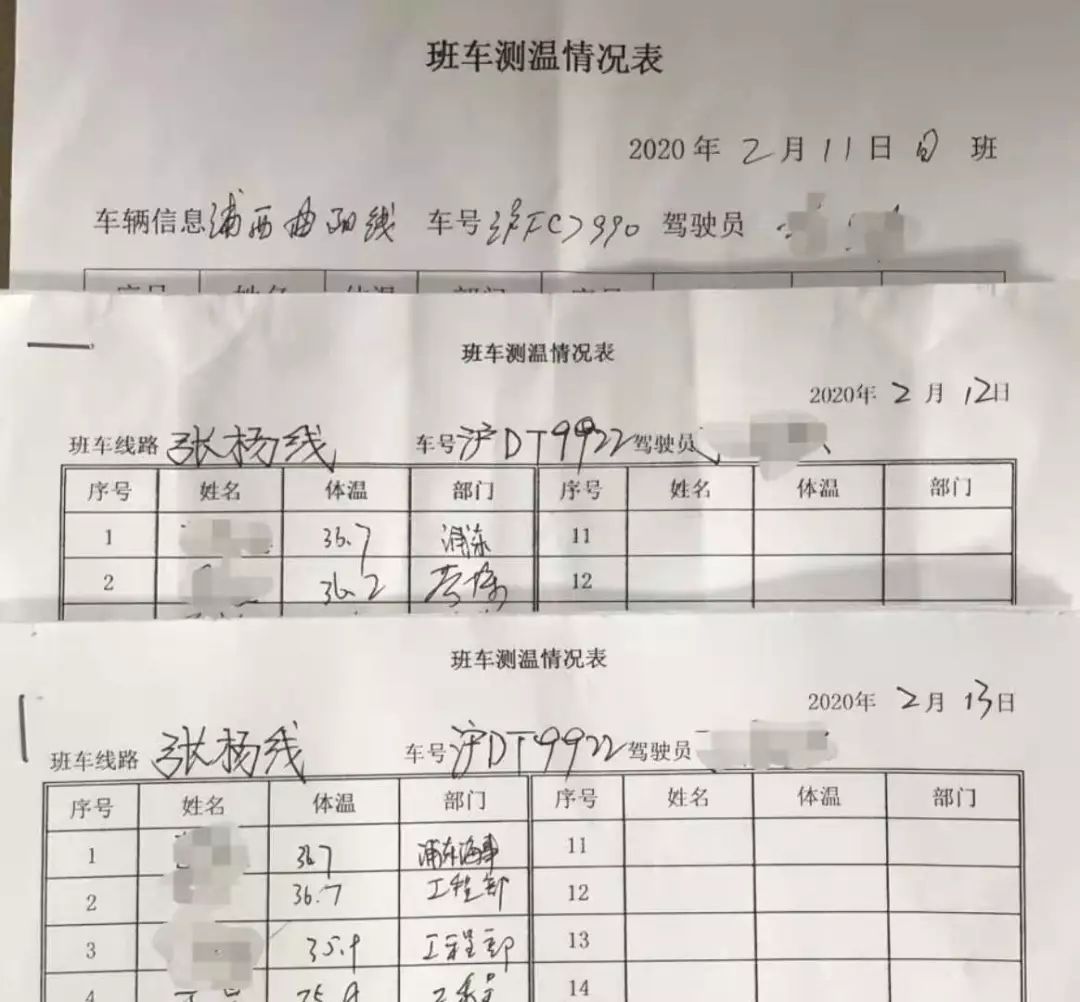 班车测温情况表
2020年 2月11日 白 班
车辆信息浦西曲阳线 车号沪FC7990 驾驶员
序号 姓名 体温 部门 序号
班车测温情况表
2020年 2月12日
班车线路 张杨线 车号沪DT9922驾驶员
序号 姓名 体温 部门 序号 姓名 体温 部门
1 36.7 浦东 11
2 36.2 12
班车测温情况表
2020年 2月13日
班车线路 张杨线 车号沪DT9922驾驶员
序号 姓名 体温 部门 序号 姓名 体温 部门
1 36.7 浦东海事 11
2 36.7 工程部 12
3 35.9 工程部 13
4 14